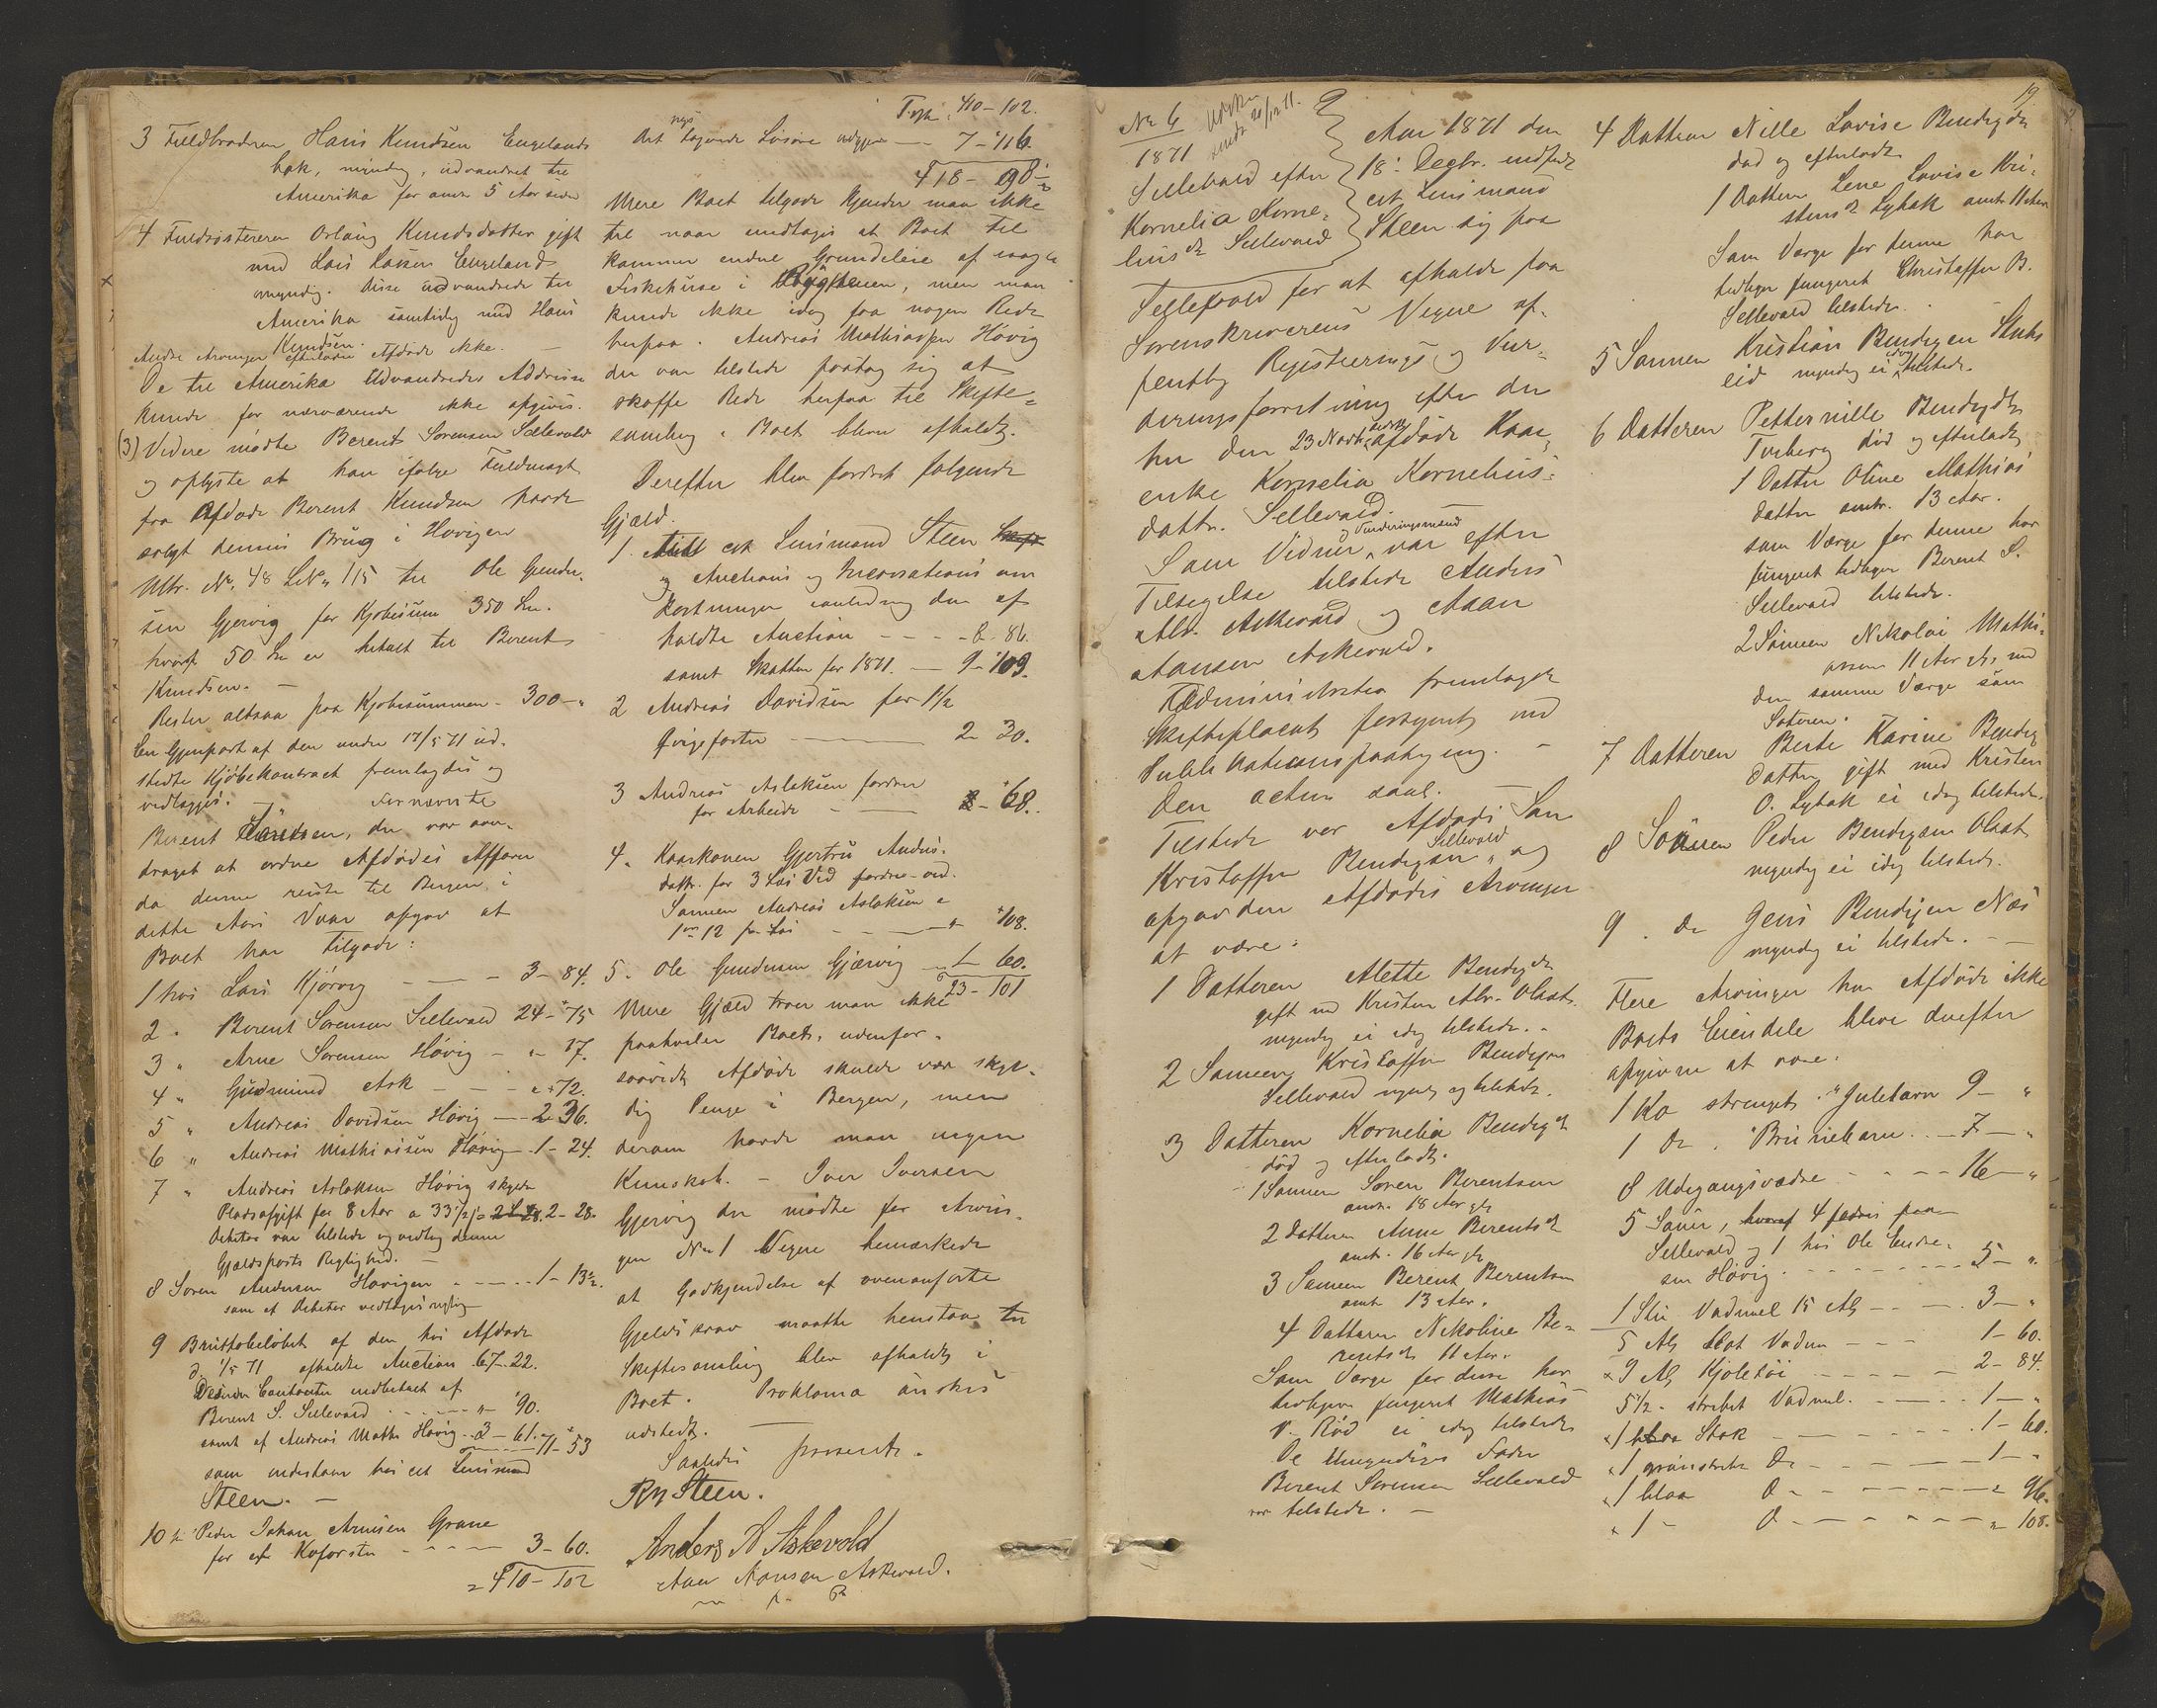 3 Fuldbroderen Hans Knudsen Engelands
bak, myndig, udvandret til
Amerika for omtr. 5 Aar siden
4 Fuldsøsteren Orlaug Knudsdatter gift
med Lars Larsen Engeland
myndig. Disse udvandrede til
Amerika samtidig med Hans
Knudsen.
Andre Arvinger efterlader Afdøde ikke. —
De til Amerika Udvandredes Addresse
kunde for nærværende ikke opgives.
(3) Videre mødte Berent Sørensen Sellevold
og oplyste at han ifølge Fuldmagt
fra Afdøde Berent Knudsen havde
solgt dennes Brug i Høvigen
Mtr. No. 48 LNo. 115 til Ole Gunder-
sen Gjervig for Kjøbesum 350 Spd.
hvoraf 50 Spd er betalt til Berent
Knudsen. —
Rester altsaa paa Kjøbesummen - 300 — "
En Gjenpart af den under 17/5 71 ud-
stedte Kjøbekontract fremlagdes og
vedlægges. — Fornævnte
Berent Sørensen, der var an-
draget at ordne Afdødes Affærer
da denne reiste til Bergen i
dette Aars Vaar opgav at
Boet har Tilgode:
1 hos Lars Kjørvig — — — 3 - 84.
2 " Berent Sørensen Sellevold 24 - 75
3 " Arne Sørensen Høvig — " - 17.
4 " Gudmund Ask — — — " - 72.
5 " Andreas Davidsen Høvig — 2 - 36.
6 " Andreas Mathiassen Høvig — 1 - 24.
7 " Andreas Aslaksen Høvig skyder
Pladsafgift for 8 Aar a 33 1/2 2 - 28.
Debitor var tilstede og vedtog denne
Gjældsposts Rigtighed. —
8 Søren Andersen Høvigen - - - - 1 - 13 1/2.
som af Debitor vedtages rigtig
9 Bruttobeløbet af den hos Afdøde
d. 1/5 71 afholdte Auction 67 - 22.
Desuden Contanter indbetalt af
Berent S. Sellevold - - - - - " - 90.
samt af Andreas Maths Høvig - 3 - 61.
71 - 53
som indestaar hos cst Lensmand
Steen. —
10 hos Peder Johan Arnesen Grane
for et Koforster — — — 3 - 60.
= 410 - 102
Trsp. 410 - 102.
Det øvrige Løsøre udgjør — 7 - 116.
418 - 98 1/2
Mere Boet tilgode kjender man ikke
til naar undtages at Boet til
kommer endnu Grundleie af nogle
Fiskehuse i Bøygtenen, men man
kunde ikke idag faa nogen Rede
herpaa. Andreas Mathiassen Høvig
der var tilstede paatog sig at
skaffe Rede herpaa til Skifte=
samling i Boet bliver afholdt.
Derefter blev fordret følgende
Gjæld.
1. cst Lensmand Steen
og Auctions og Incassations om
kostninger anledning den af
holdte Auction — — — 6 - 86.
samt Skatten for 1871. — 9 - 109.
2 Andreas Davidsen for 1 1/2
Qvigefoster — — — 2 - 30.
3 Andreas Aslaksen fordrer
for Arbeide — — — 2 - 68.
4. Kaarkonen Gjertru Anders-
dattr. for 3 Læs Ved fordrer ved
Sønnen Andreas Aslaksen a
1 ort 12 pr Læs — — — " - 108.
5. Ole Gundersen Gjærvig — 1 - 60.
23 - 101
Mere Gjæld troer man ikke
paahviler Boet, udenfor
saavidt Afdøde skulde være skyl-
dig Penge i Bergen, men
derom havde man ingen
Kundskab. — Iver Iversen
Gjervig der mødte for Arvin-
gen No 1 Vegne bemærkede
at Godkjendelse af ovenanførte
Gjeldskrav maatte henstaa til
Skiftesamling blev afholdt i
Boet. Proklama ønskes
udstedt.
Saaledes passeret.
Rg Steen.
Anders A Askevold
Aan Aansen Askevold.
m. p. P.
19.
No 6
1871
Udskr.
sendt 20/12 71.
Sellevold efter
Kornelia Korne-
liusdr Sellevold
Aar 1871 den
18de Decbr. indfandt
cst Lensmand
Steen sig paa
Sellevold for at afholde paa
Sorenskriverens Vegne of-
fentlig Registrerings og Vur-
deringsforretning efter den
her den 23 Novb. sidst afdøde Kaar-
enke Kornelia Kornelius-
dattr. Sellevold. —
Som Vidner og Vurderingsmænd var efter
Tilsigelse tilstede Anders
Alr. Askevold og Aaan
Aansen Askevold.
Administrator fremlagde
Skifteplacat forsynet med
Publikationspaategning. —
Den acten saal. —
Tilstede var Afdødes Søn
Kristoffer Bendixsen Sellevold og
opgav den Afdødes Arvinger
at være:
1 Datteren Alette Bendixdr
gift med Kristen Alr. Olset
myndig ei idag tilstede. -
2 Sønnen Kristoffer Bendixsen
Sellevold myndig og tilstede.
3 Datteren Kornelia Bendixdr
død og efterladt.
1 Sønnen Søren Berentsen
omtr. 18 Aar gl.
2 Datteren Anne Berentsdr
omtr. 16 Aar gl.
3 Sønnen Berent Berentsen
omtr. 13 Aar.
4 Datteren Nikoline Be-
rentsdr 11 Aar.
Som Værge for disse har
tidligere fungeret Mathias
P. Rød ei idag tilstede
De Umyndiges Fader
Berent Sørensen Sellevold
var tilstede. —
4 Datteren Nille Lovise Bendixdr
død og efterladt
1 Datteren Lene Lovise Kri-
stensdr Lyhak omtr. 11 Aar
Som Værge for denne har
tidligere fungeret Christoffer B.
Sellevold tilstede.
5 Sønnen Kristian Bendixsen Staks
eid myndig ei idag tilstede.
6 Datteren Petternille Bendixdtr
Furberg død og efterladt
1 Datter Oline Mathias
datter omtr. 13 Aar.
som Værge for denne har
fungeret tidligere Berent S.
Sellevold tilstede.
2 Sønnen Nikolai Mathi-
assen 11 Aar gl. med
den samme Værge som
Søsteren.
7 Datteren Berte Karine Bendix
datter gift med Kristen
O. Lyhak ei idag tilstede.
8 Sønnen Peder Bendixsen Olset
myndig ei idag tilstede.
9. Do Jens Bendixen Næs
myndig ei tilstede. — —
Flere Arvinger har Afdøde ikke
Boets Eiendele blev derefter
opgivne at være:
1 Ko strenget "Juletarn 9 — "
1 Do " Brunehorn . . — 7 — "
8 Udegangsvædre - - - - 16 — "
5 Sauer, hvoraf 4 fødes paa
Sellevold og 1 hos Ole Endre-
sen Høvig. - - - - - - - 5 — "
1 Stk Vadmel 15 Al. - - - . 3 — "
5 Al. blaat Vadm — — — 1 - 60.
9 Al. Kjoletøi - - - - - 2 - 84.
5 1/2 " stribet Vadmel. - - - . 1 — "
1 blaa Stak — — — — — 1 - 60.
1 grønstribet Do — — — — — 1 — "
1 blaa Do — — — — — " 96.
1 - Do — — — — — " 108.